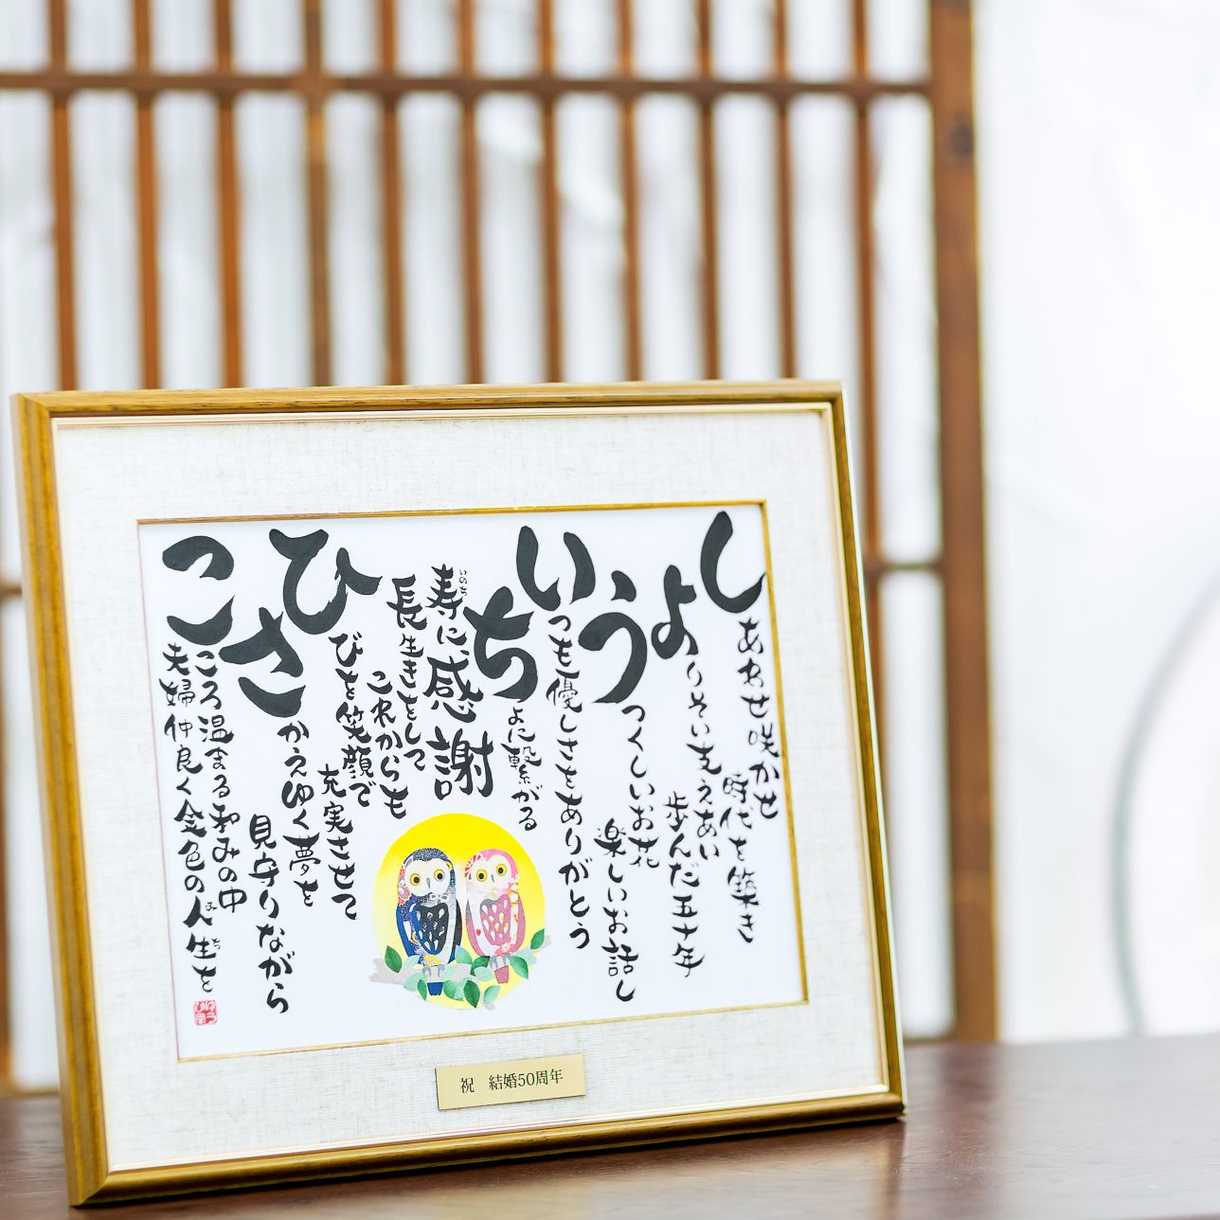 しあわせ咲かせ
時代を築き
よりそい支えあい
歩んだ五十年
うつくしいお花
楽しいお話し
いつも優しさをありがとう
ちよに繋がる
寿に感謝
いのち
長生きをして
これからも
ひびを笑顔で
充実させて
さかえゆく夢を
見守りながら
こころ温まる和みの中
夫婦仲良く金色の人生を
みち
祝 結婚50周年